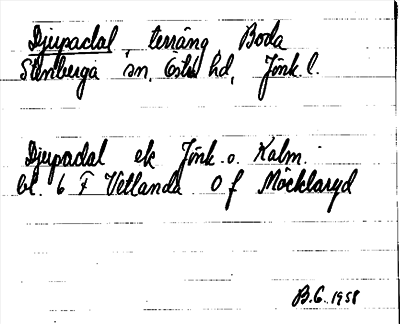 Djupadal, terräng, Boda
Stenberga sn, Östra hd, Jönk. l.
Djupadal ek Jönk. o. Kalm.
bl. 6 F Vetlanda O f Möcklaryd
B.G. 1958